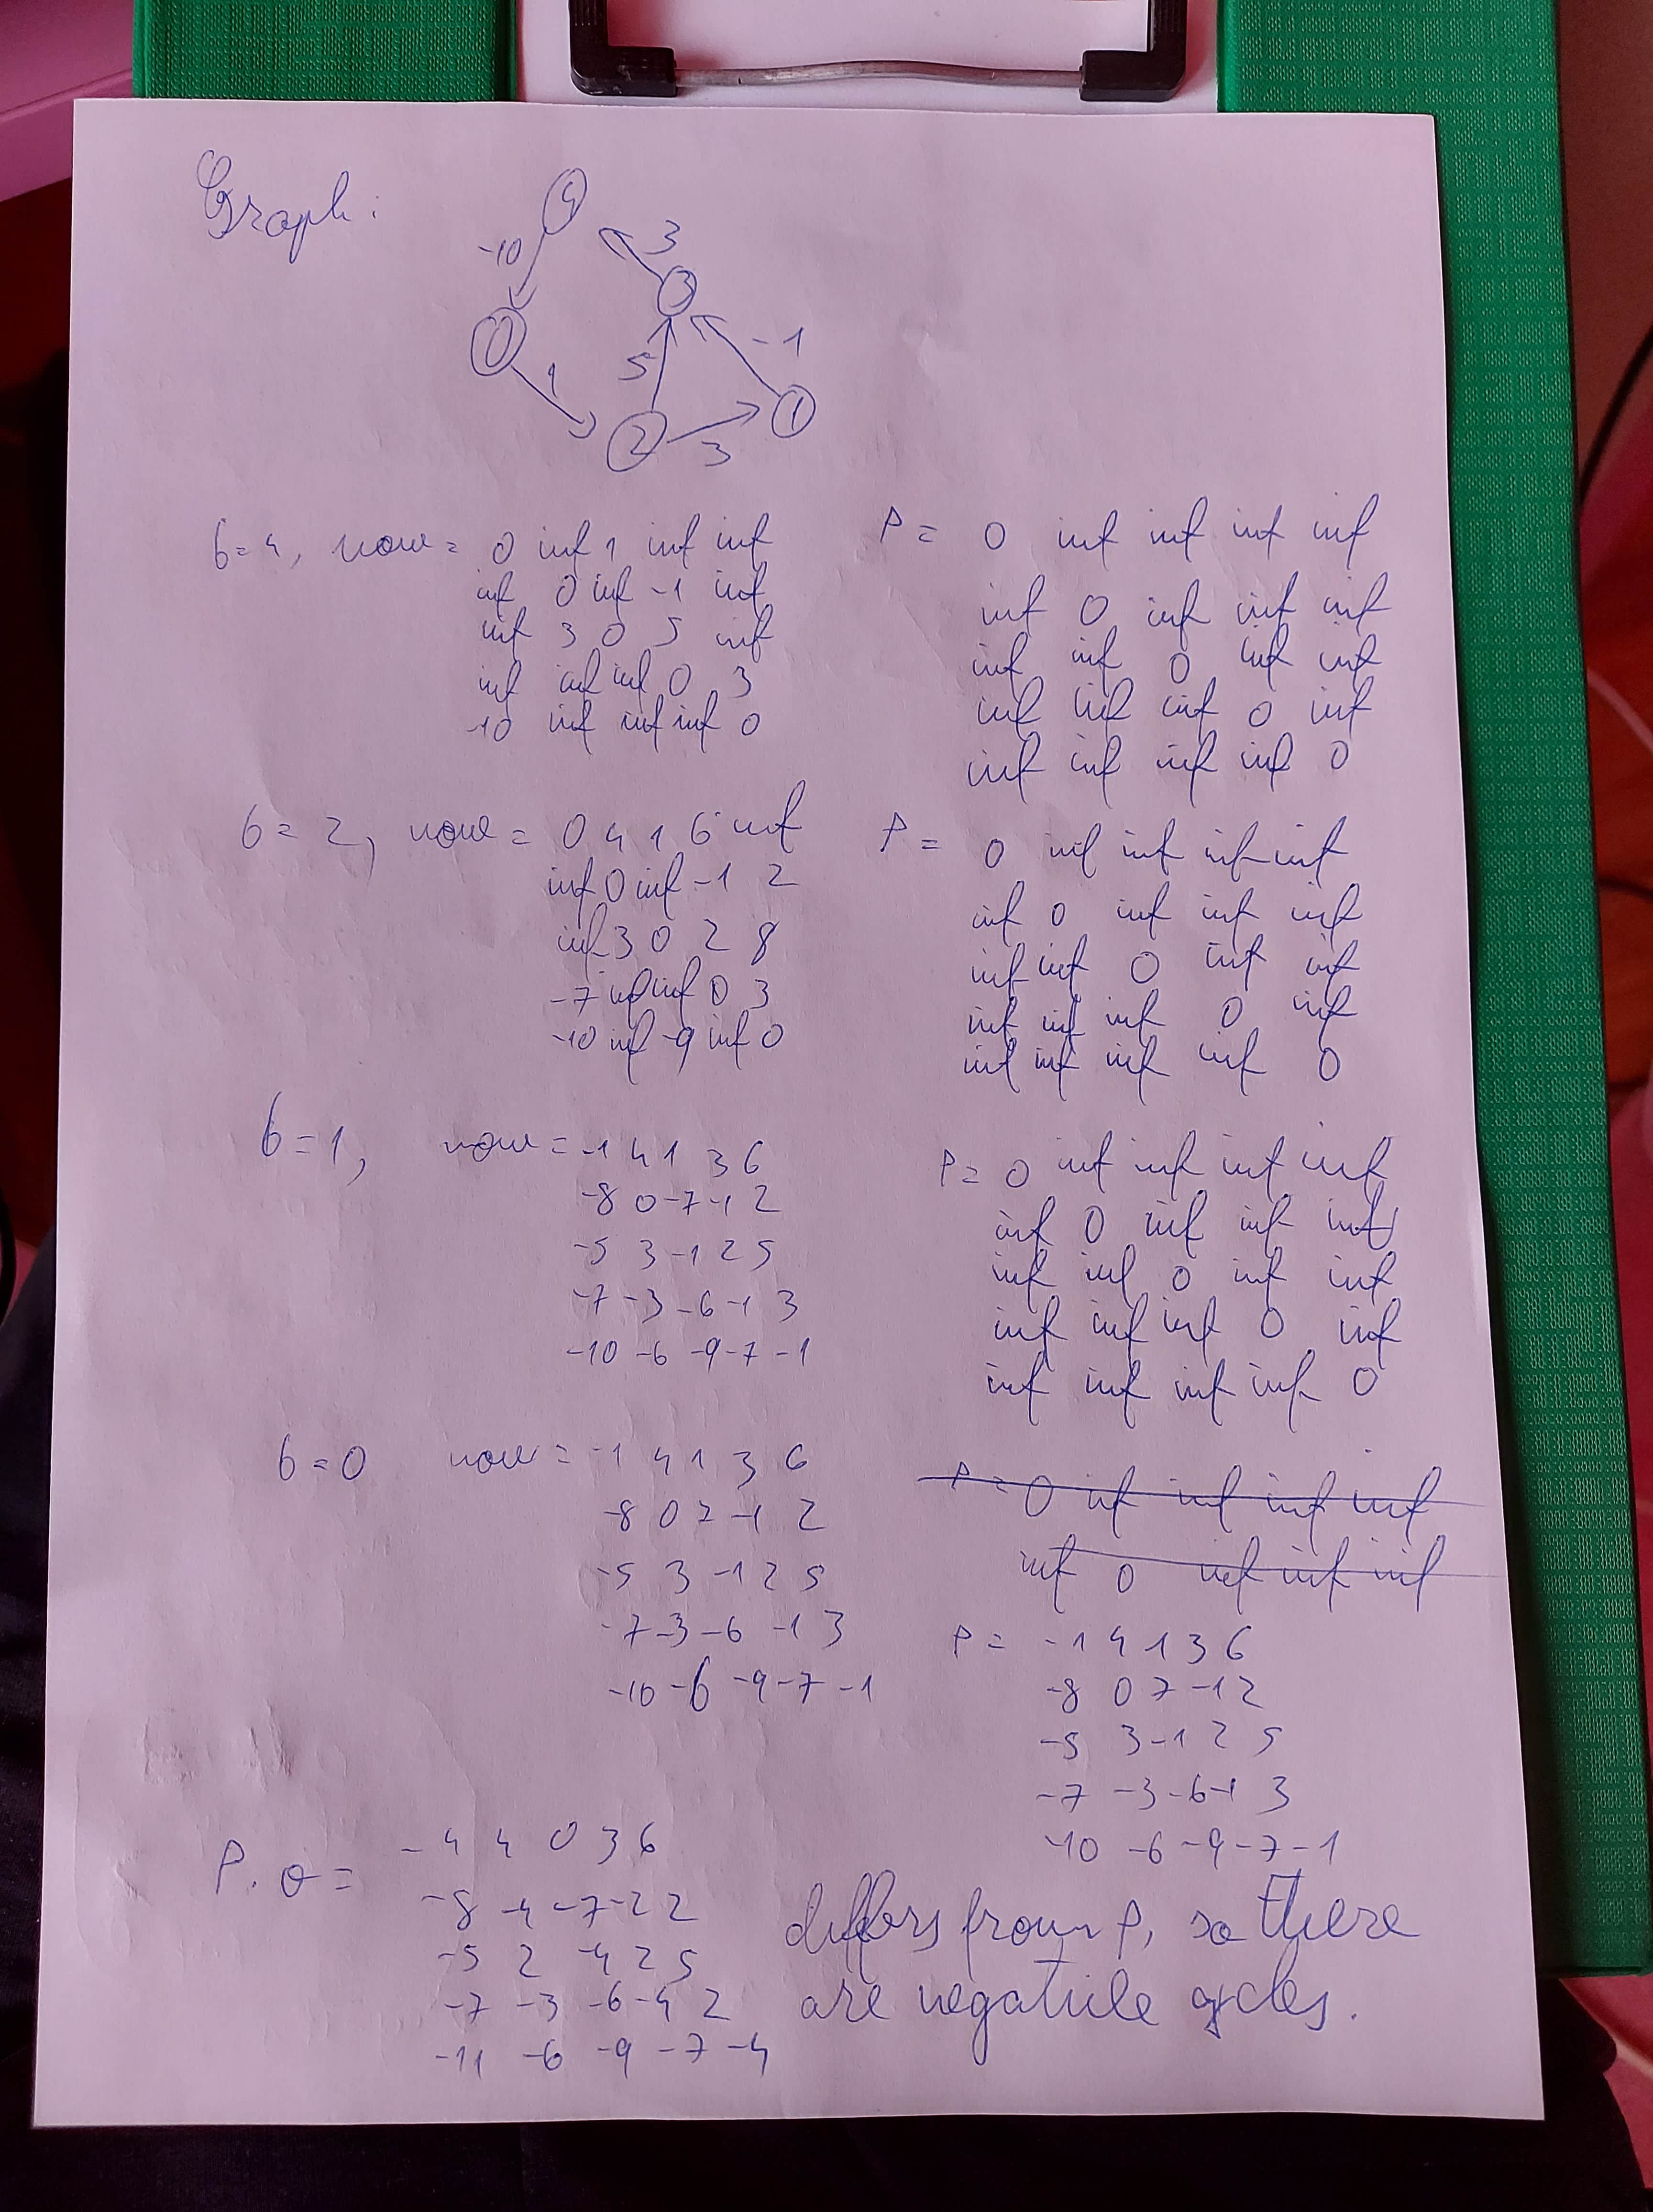 Graph:
4
-10
3
3
0
-1
5
1
1
2
3
b=4, now = 0 inf 1 inf inf
inf 0 inf -1 inf
inf 3 0 5 inf
inf inf inf 0 3
-10 inf inf inf 0
P = 0 inf inf inf inf
inf 0 inf inf inf
inf inf 0 inf inf
inf inf inf 0 inf
inf inf inf inf 0
b=2, now = 0 4 1 6 inf
inf 0 inf -1 2
inf 3 0 2 8
-7 inf inf 0 3
-10 inf -9 inf 0
P = 0 inf inf inf inf
inf 0 inf inf inf
inf inf 0 inf inf
inf inf inf 0 inf
inf inf inf inf 0
b=1, now = -1 4 1 3 6
-8 0 -7 -1 2
-5 3 -1 2 5
-7 -3 -6 -1 3
-10 -6 -9 -7 -1
P = 0 inf inf inf inf
inf 0 inf inf inf
inf inf 0 inf inf
inf inf inf 0 inf
inf inf inf inf 0
b=0 now = -1 4 1 3 6
-8 0 7 -1 2
-5 3 -1 2 5
-7 -3 -6 -1 3
-10 -6 -9 -7 -1
P = 0 inf inf inf inf
inf 0 inf inf inf
P = -1 4 1 3 6
-8 0 7 -1 2
-5 3 -1 2 5
-7 -3 -6 -1 3
-10 -6 -9 -7 -1
P. o = -4 4 0 3 6
-8 -4 -7 -2 2
-5 2 -4 2 5
-7 -3 -6 -4 2
-11 -6 -9 -7 -4
differs from P, so there
are negative cycles.